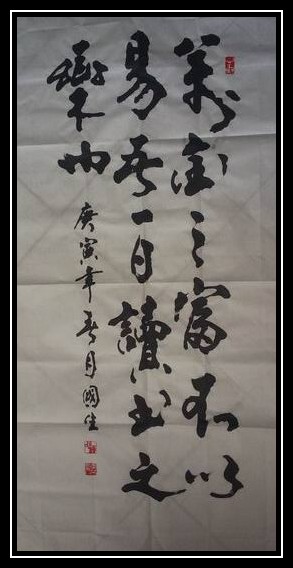 萬金之富不以
易吾一日讀書之
樂也
庚寅年春月國生